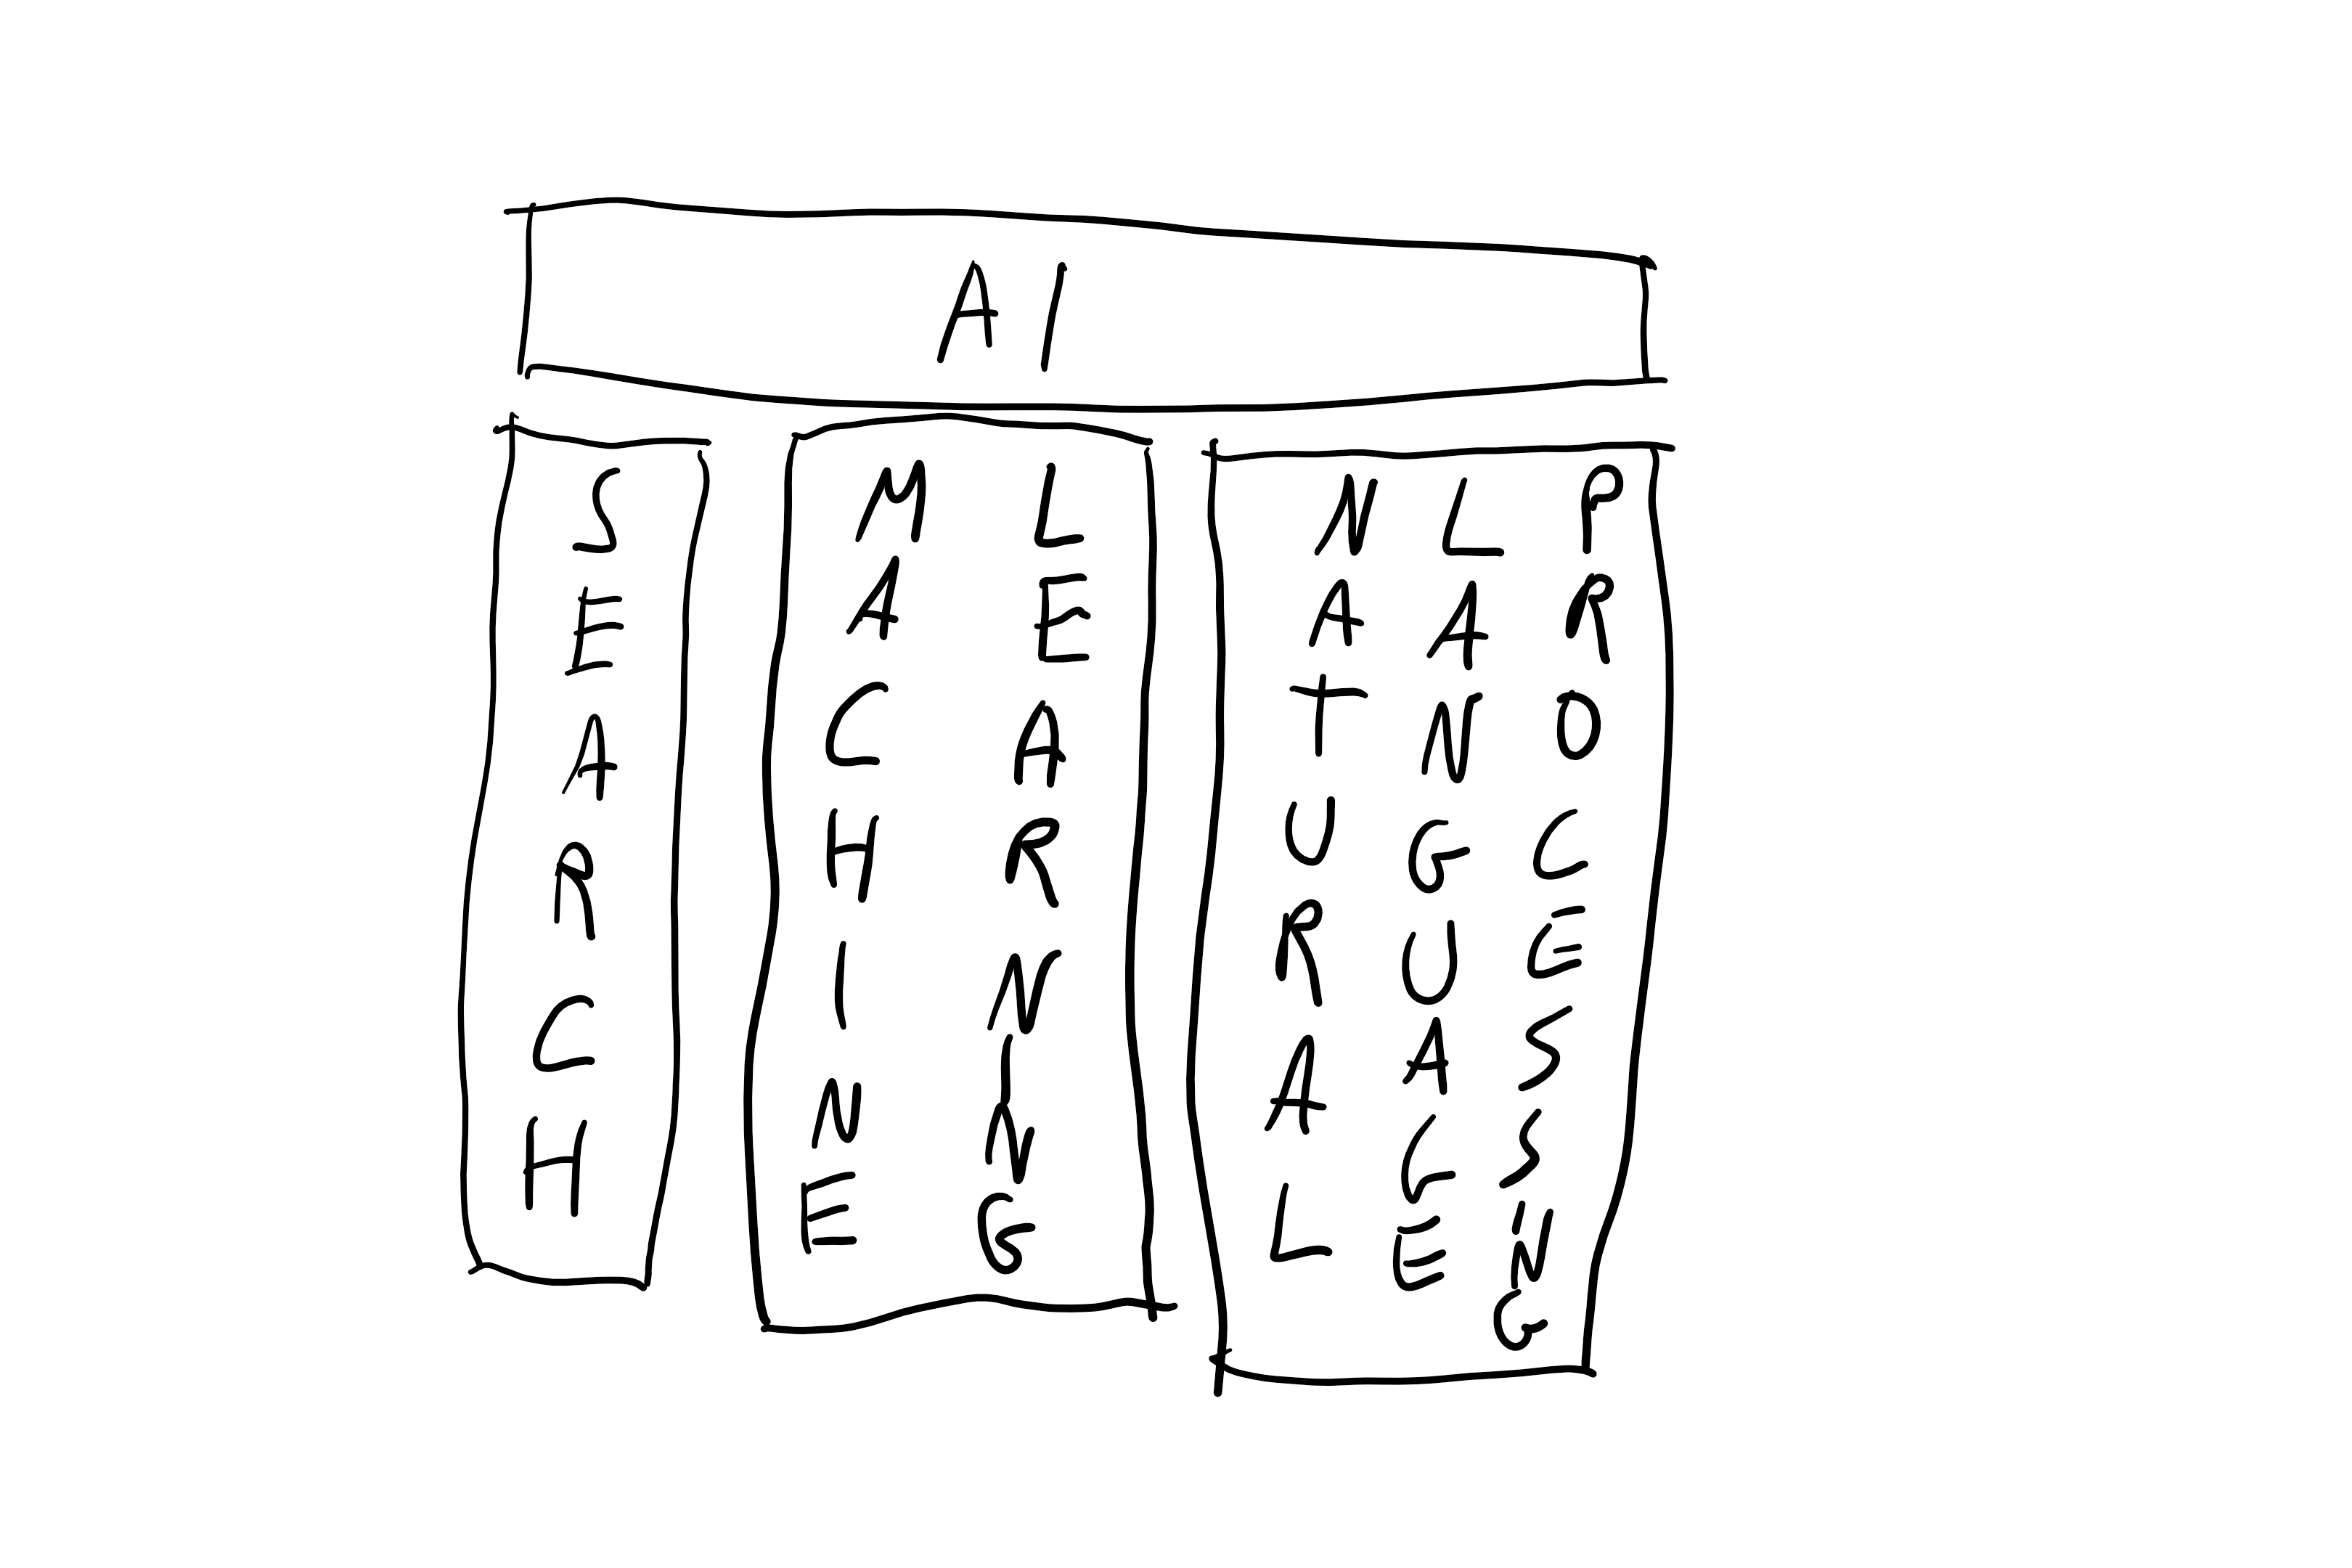 AI
SEARCH
MACHINE
LEARNING
NATURAL
LANGUAGE
PROCESSING